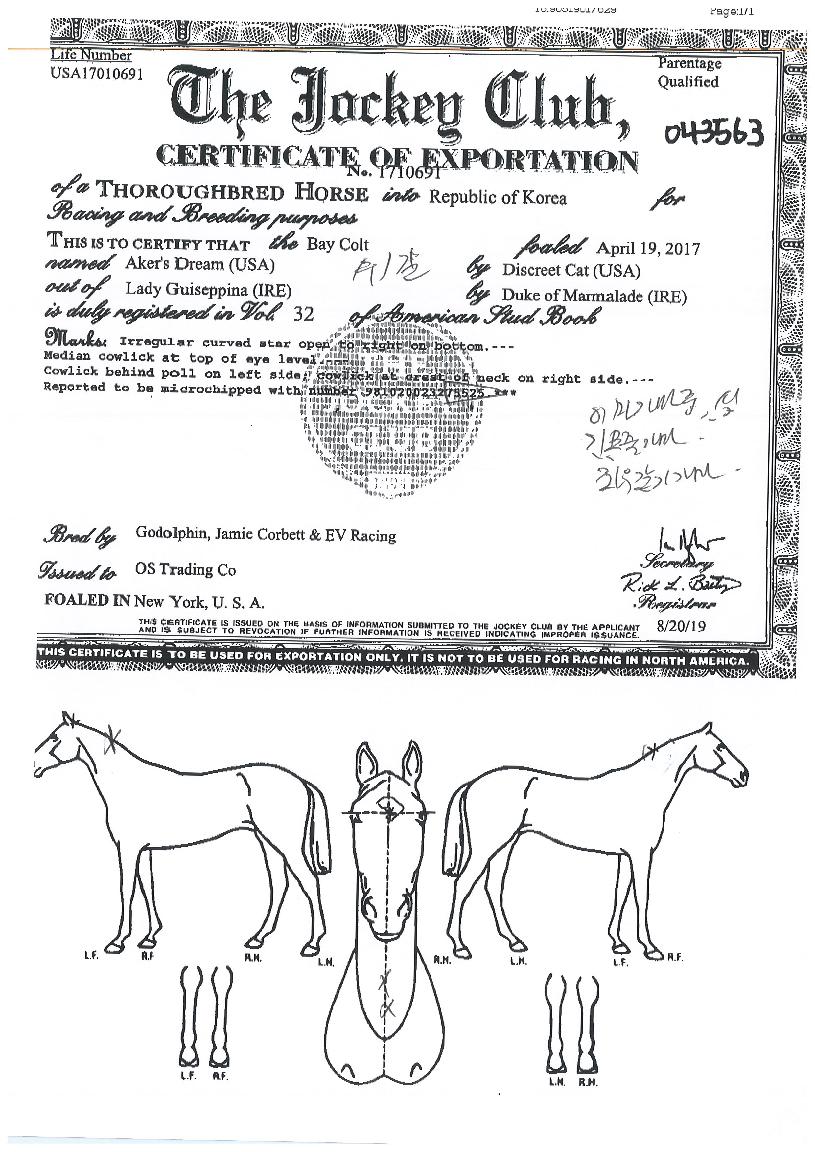 Page:1/1
Life Number
USA17010691
Parentage
Qualified
The Jockey Club,
043563
CERTIFICATE OF EXPORTATION
No. 1710691
of a THOROUGHBRED HORSE into Republic of Korea for
Racing and Breeding purposes
THIS IS TO CERTIFY THAT the Bay Colt foaled April 19, 2017
named Aker's Dream (USA) by Discreet Cat (USA)
out of Lady Guiseppina (IRE) by Duke of Marmalade (IRE)
is duly registered in Vol. 32 of American Stud Book
Marks: Irregular curved star open to right on bottom.---
Median cowlick at top of eye level.---
Cowlick behind poll on left side; cowlick at crest of neck on right side.---
Reported to be microchipped with number
Bred by Godolphin, Jamie Corbett & EV Racing
Secretary
Issued to OS Trading Co
Rick L. Bailey
Registrar
FOALED IN New York, U. S. A.
THIS CERTIFICATE IS ISSUED ON THE BASIS OF INFORMATION SUBMITTED TO THE JOCKEY CLUB BY THE APPLICANT
AND IS SUBJECT TO REVOCATION IF FURTHER INFORMATION IS RECEIVED INDICATING IMPROPER ISSUANCE.
8/20/19
THIS CERTIFICATE IS TO BE USED FOR EXPORTATION ONLY. IT IS NOT TO BE USED FOR RACING IN NORTH AMERICA.
L.F. R.F. R.H. L.H. R.H. L.H. L.F. R.F.
L.F. R.F. L.H. R.H.